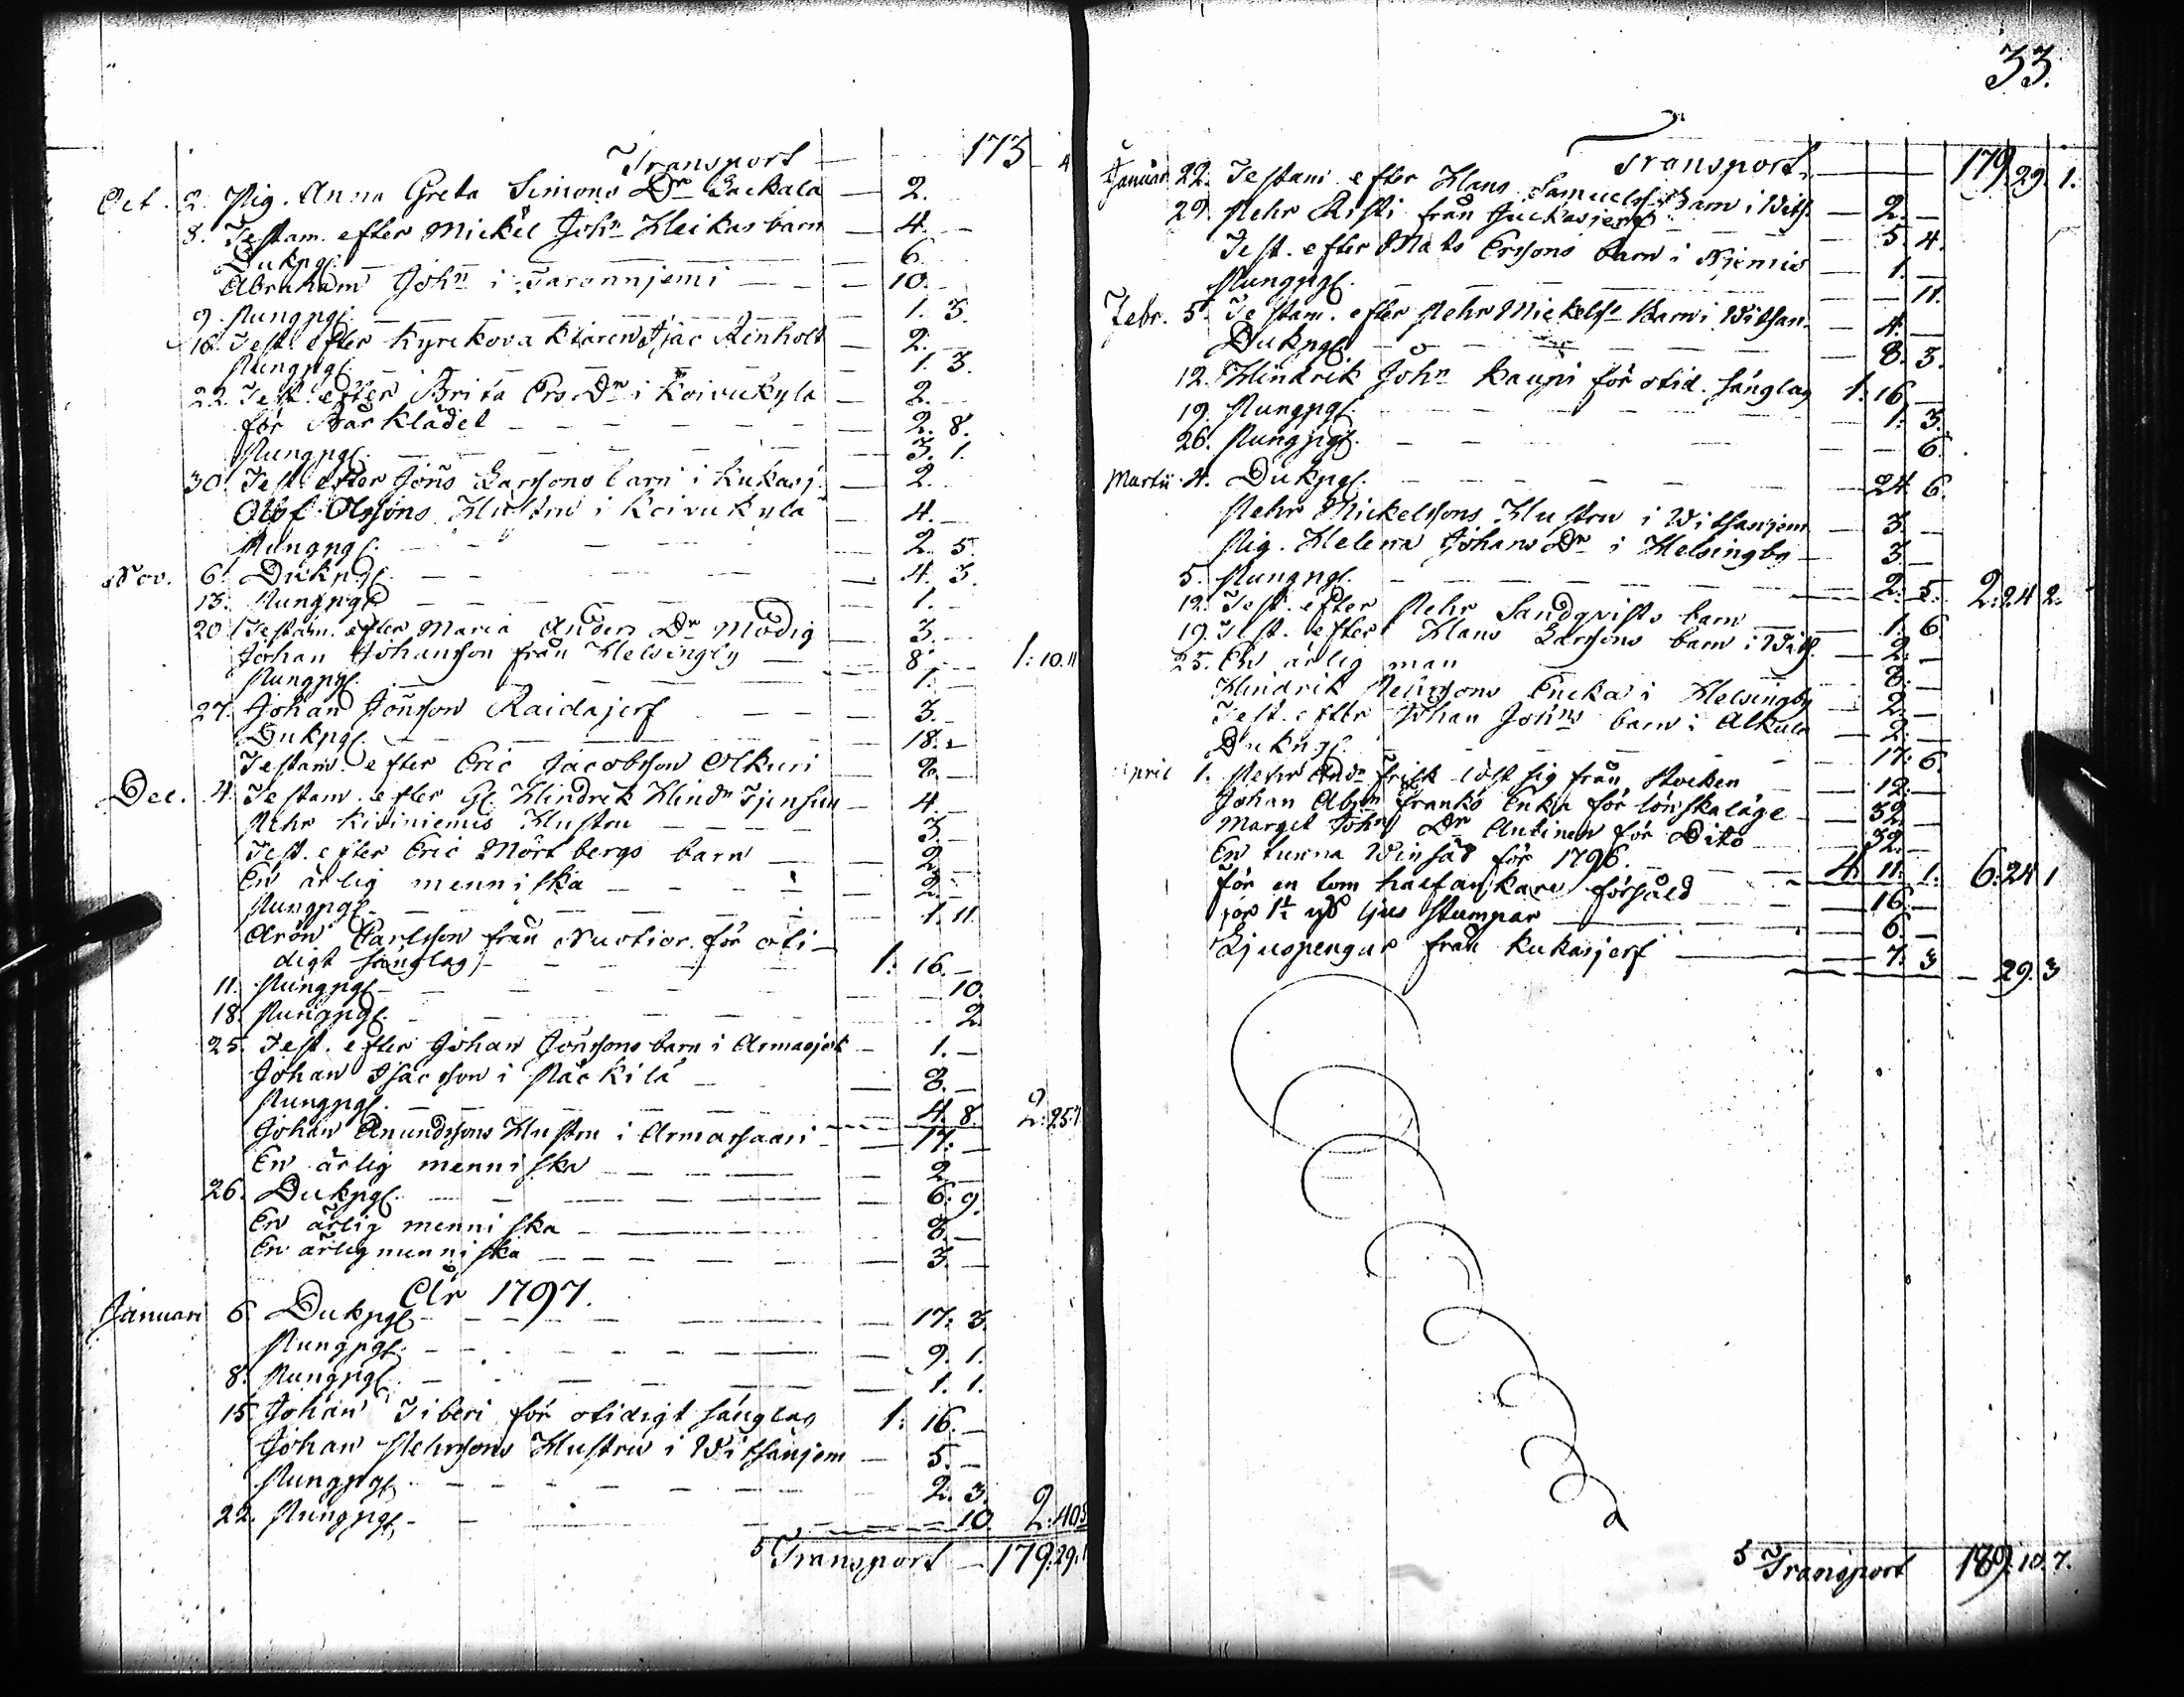 Transport — 173 — 4
Oct. 2. Pig. Anna Greta Simons Dr Lackala — 2.
8. Testam. efter Mickel John Heikas barn — 4. —
Dukpgr. — 6.
Abraham John i Taronnjemi — 10.
9. Pungpgr. — 1. 3.
16. Test. efter Kyrckovaktaren Isac Renholt — 2.
Pungpgr. — 1. 3.
22. Test. efter Brita Ers Dr i Koivukyla — 2. —
för Bårklädet — 2. 8.
Pungpgr. — 3. 1.
30. Test. efter Jöns Larssons barn i Kukasj. — 2.
Olof Olssons Hustru i Koivukyla — 4. —
Pungpgr. — 2. 5.
Nov. 6. Dukpgr. — 4. 3.
13. Pungpgr. — 1. —
20. Testam. efter Maria Anders Dr Modig — 3. —
Johan Johansson från Helsingby — 8. — 1: 10. 11
Pungpgr. — 1. —
27. Johan Jönsson Raidajerf — 3. —
Dukpgr. — 18. —
Testam. efter Eric Jacobsson Alkuri — 2. —
Dec. 4. Testam. efter Gl. Hindrick Hindr — 4. —
Pehr Kiviniemis Hustru — 3. —
Test. efter Eric Mörtbergs barn — 2. —
En ärlig menniska — 2. —
Pungpgr. — 1. 11.
Aron Carlsson från för oti-
digt sänglag — 1: 16. —
11. Pungpgr. — 10.
18. Pungpgr. — 2.
25. Test. efter Johan Jönssons barn i Armasjerf — 1. —
Johan Isacsson i Päckilä — 8. —
Pungpgr. — 4. 8. 2: 25. 7
Johan Anundssons Hustru i Armassaari — 17. —
En ärlig menniska — 2. —
26. Dukpgr. — 6. 9.
En ärlig menniska — 8. —
En ärlig menniska — 3. —
År 1797.
Januari 6. Dukpgr. — 17. 3.
Pungpgr. — 9. 1.
8. Pungpgr. — 1. 1.
15. Johan Tiberi för otidigt sänglag 1: 16. —
Johan Pehrssons Hustru i Witsanjem — 5. —
Pungpgr. — 2. 3.
22. Pungpgr. — 10. 2: 40. 5
Transport — 179. 29. 1
33.
Transport. — 179. 29. 1.
Januari 22. Testam. efter Hans Samuelss. Barn i Wits. — 2. —
29. Pehr Risti från Juckasjerf — 5. 4.
Test. efter Mats Erssons barn i Niemis — 1. —
Pungpgr. — 11.
Febr. 5. Testam. efter Pehr Mickelsss Barn i Witsan. — 4. —
Dukpgr. — 8. 3.
12. Hindrik John Kaupi för otid. sänglag 1: 16 —
19. Pungpgr. — 1. 3.
26. Pungpgr. — 6.
Martii 4. Dukpgr. — 24. 6.
Pehr Mickelssons Hustru i Witsanjem — 3. —
Pig. Helena Johans Dr i Helsingby — 3. —
5. Pungpgr. — 2. 5. 2: 24 2.
12. Test. efter Pehr Sandqvists barn — 1. 6
19. Test. efter Hans Larssons barn i Wits. — 2. —
25. En ärlig man — 8. —
Hindrik Pehrssons Encka i Helsingby — 2. —
Test. efter Johan Johns barn i Alkula — 2. —
Dukpgr. — 17. 6.
April 1. Pehr Andr Frisk löst sig från stocken — 12. —
Johan Abrm Franks Enka för lönskaläge — 32. —
Marget Johns Dr Antinen för Dito — 32. —
En tunna Winsäd för 1796. — 4. 11. 1. 6. 24 1
för en tom halfankare försåld — 16. —
för 1½ ljus stumpar — 6. —
Ljuspengar från Kukasjerf — 7. 3 — 29. 3
Transport 189. 10. 7.